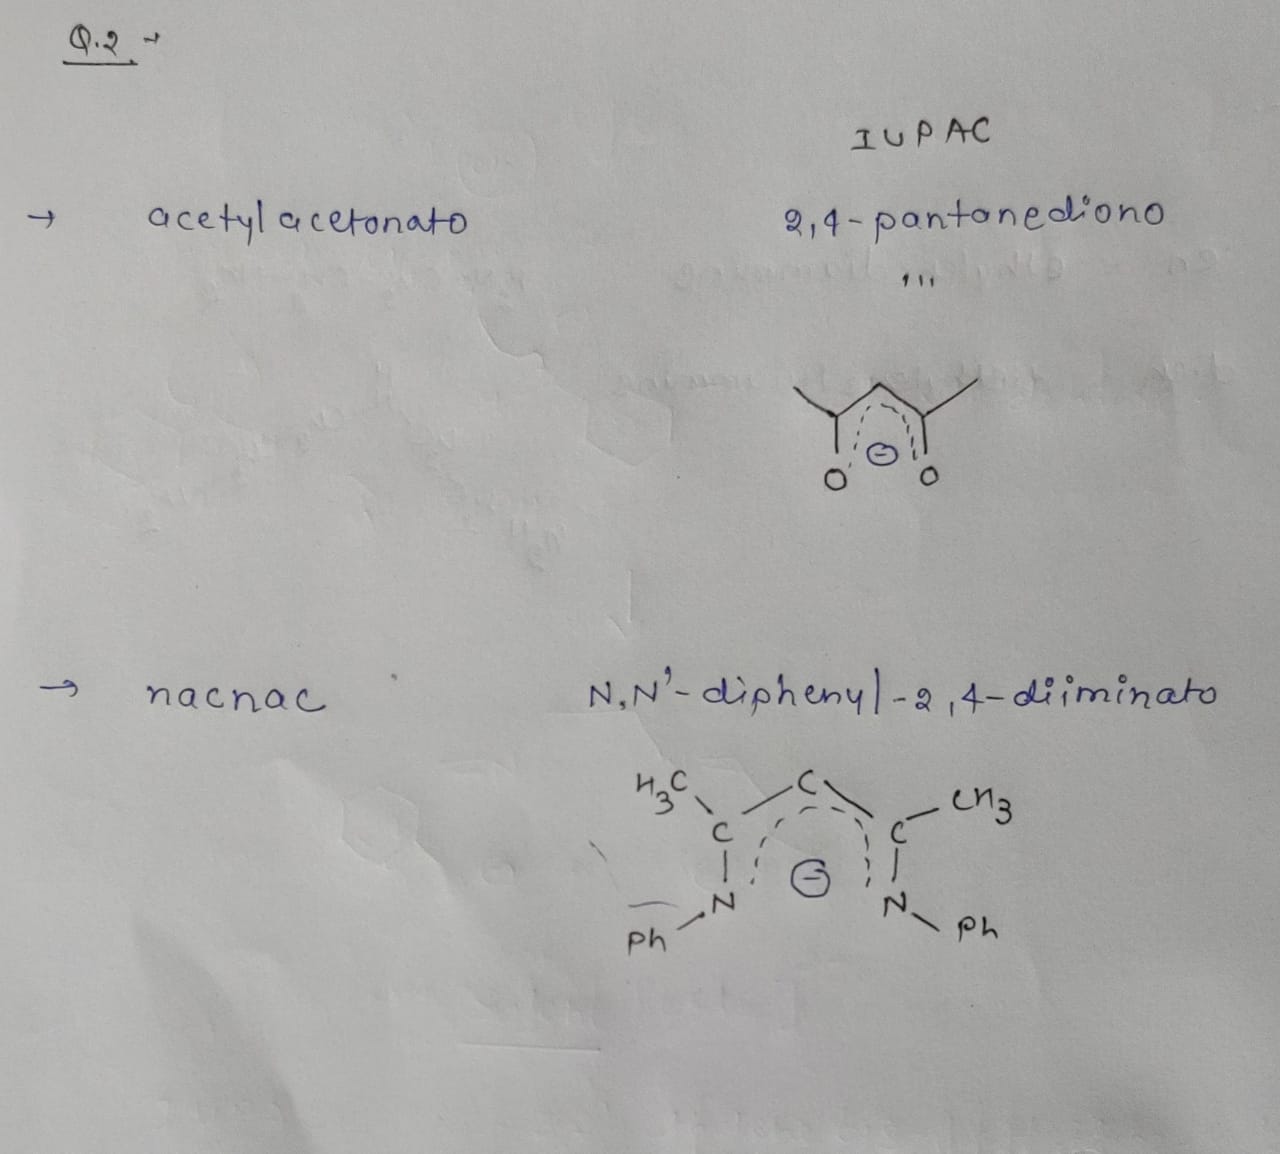 Q.2 →
IUPAC
→ acetylacetonato 2,4-pantanediono
,,,
O ⊖ O
→ nacnac N,N'-diphenyl-2,4-diiminato
H3C C CH3
C C
⊖
N N
Ph Ph